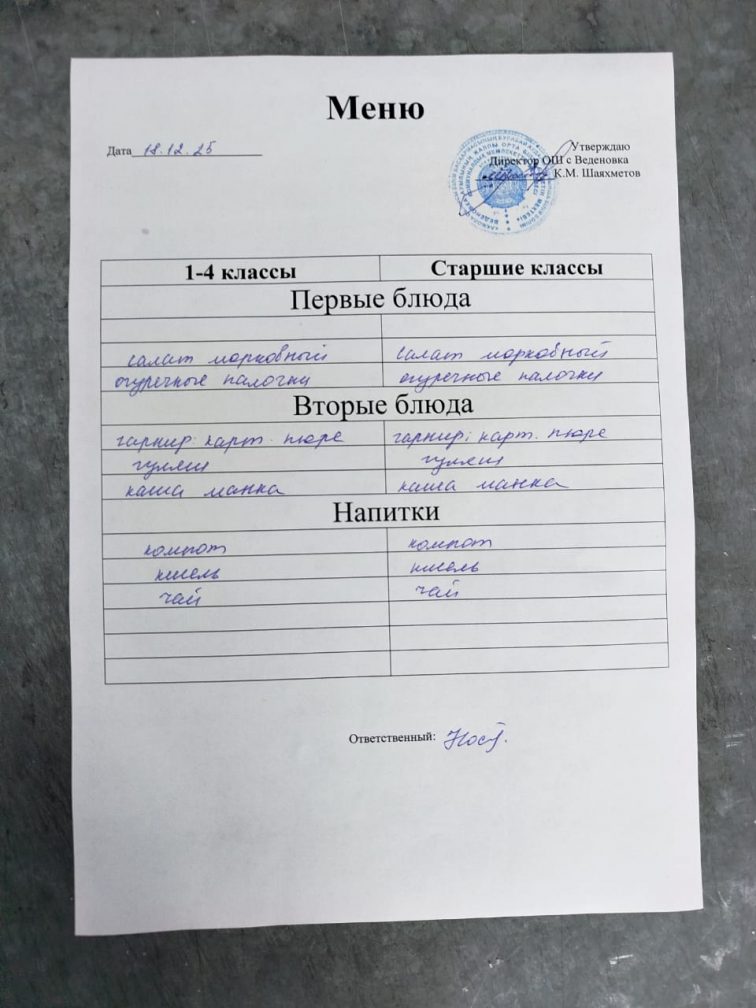 Меню
Дата 18.12.25
Утверждаю
Директор ОШ с Веденовка
К.М. Шаяхметов
1-4 классы Старшие классы
Первые блюда
салат морковный салат морковный
огуречные палочки огуречные палочки
Вторые блюда
гарнир: карт. пюре гарнир: карт. пюре
гуляш гуляш
каша манка каша манка
Напитки
компот компот
кисель кисель
чай чай
Ответственный: